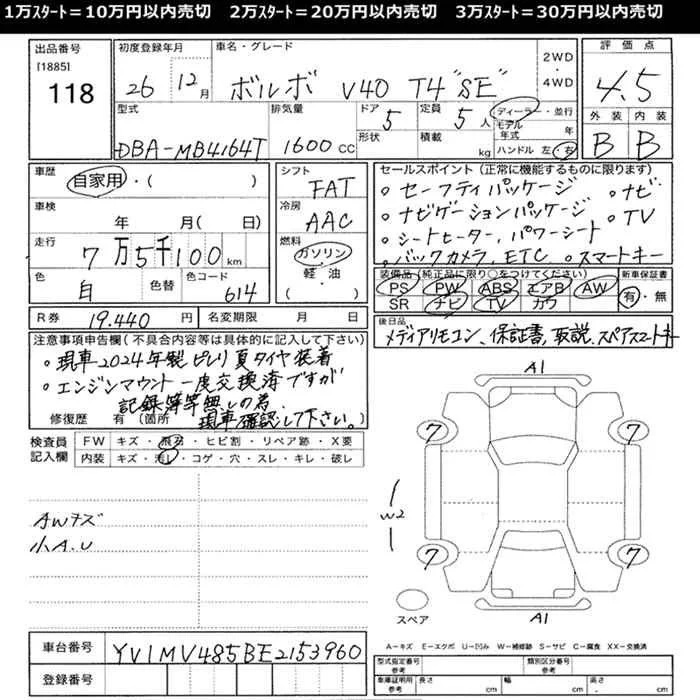 1万ｽﾀｰﾄ＝10万円以内売切　2万ｽﾀｰﾄ＝20万円以内売切　3万ｽﾀｰﾄ＝30万円以内売切
出品番号
[1885]
118
初度登録年月
26年12月
車名・グレード
ボルボ V40 T4 "SE"
2WD・4WD
評価点
4.5
外装 内装
B B
型式
DBA-MB4164T
排気量
1600cc
ドア
5
形状
定員
5人
積載
kg
ディーラー・並行
モデル年式 年
ハンドル 左・右
車歴
自家用・( )
車検
年 月( 日)
走行
7万5千100km
色
白
色替
色コード
614
シフト
FAT
冷房
AAC
燃料
ガソリン・軽・油
( )
セールスポイント(正常に機能するものに限ります)
○セーフティパッケージ ○ナビ
○ナビゲーションパッケージ ○TV
○シートヒーター、パワーシート
○バックカメラ、ETC ○スマートキー
装備品(純正品に限り○をつけてください)
PS PW ABS エアB AW
SR ナビ TV カワ
新車保証書
有・無
R券 19.440円
名変期限 月 日
後日品
メディアリモコン、保証書、取説、スペアスマートキー
注意事項申告欄(不具合内容等は具体的に記入して下さい)
○現車2024年製ピレリ夏タイヤ装着
○エンジンマウント一度交換済ですが
記録簿等無しの為、
現車確認して下さい。
修復歴 有(箇所
検査員記入欄
FW キズ・飛石・ヒビ割・リペア跡・X要
内装 キズ・汚レ・コゲ・穴・スレ・キレ・破レ
AWキズ
小A.U
A1
7 7
W2
7 7
A1
スペア
A－キズ E－エクボ U－凹み W－補修跡 S－サビ C－腐食 XX－交換済
車台番号 YV1MV485BE2153960
登録番号
型式指定番号参考
類別区分番号
車庫証明用参考 長さ cm 幅 cm 高さ cm